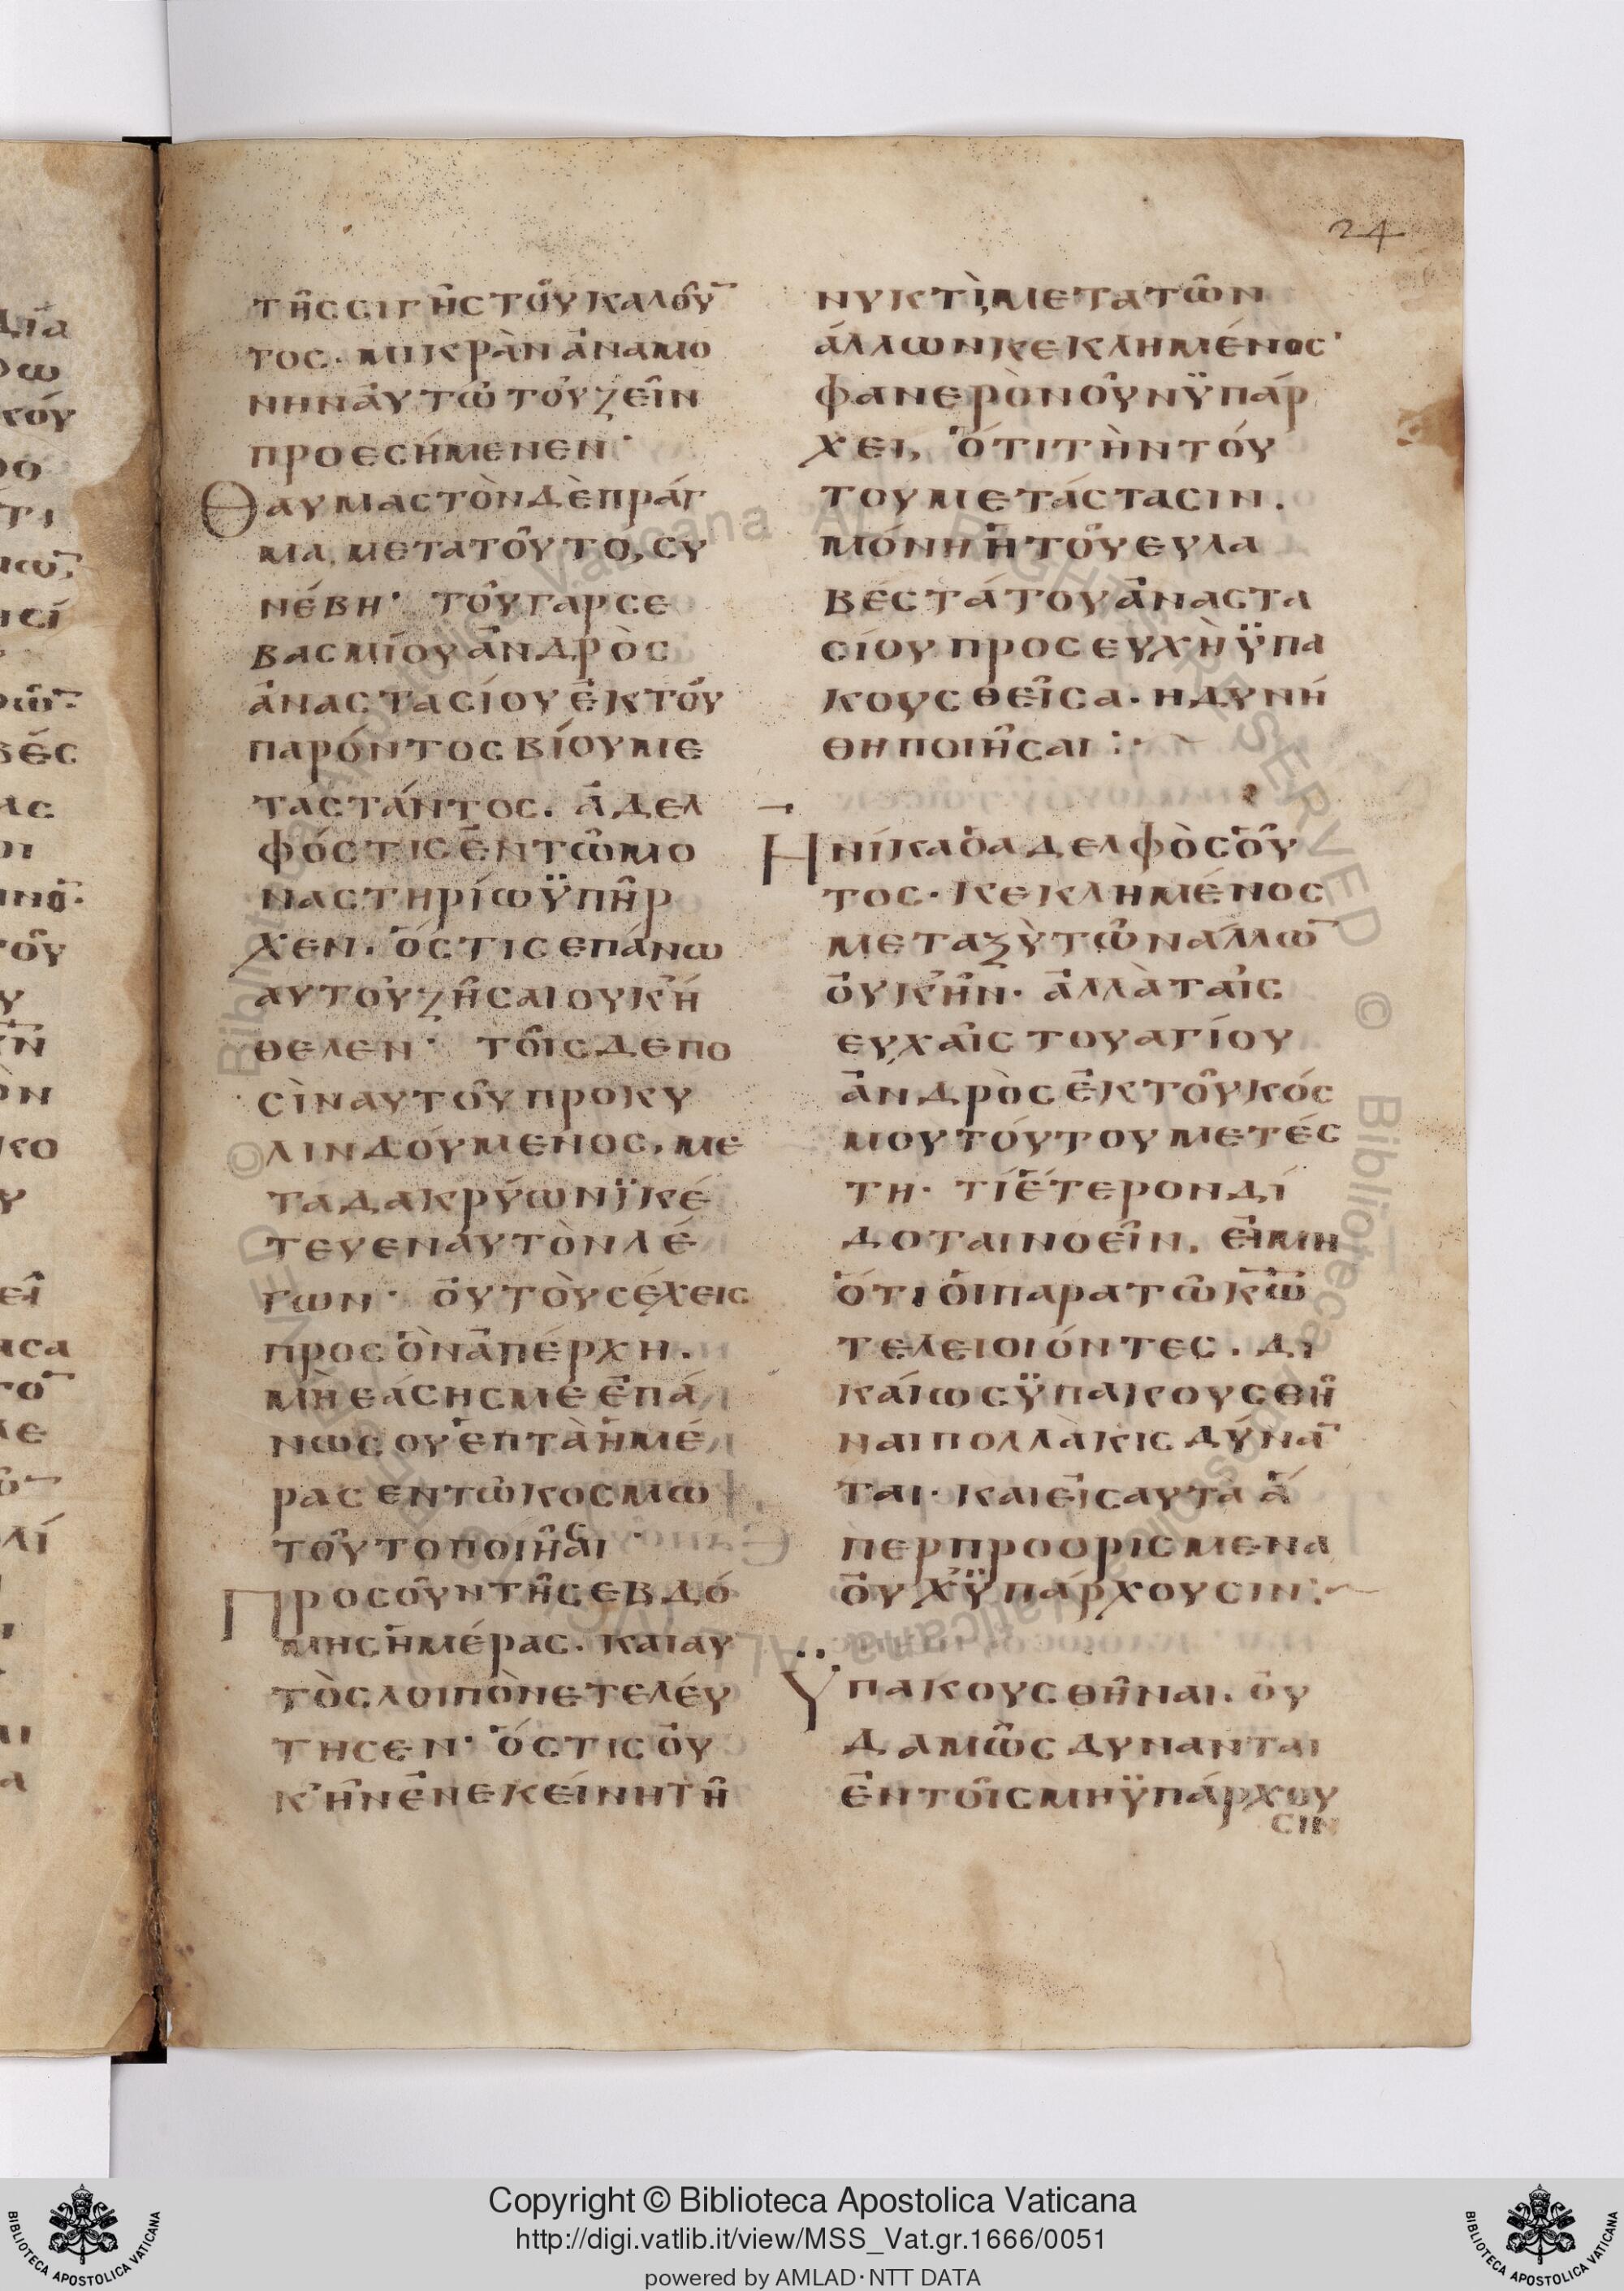 24
τῆς σιγῆς τοῦ καλοῦ̅
τος· μικρὰν ἀναμο
νὴν αὐτῶ τοῦ ζεῖν
προεσήμενεν·
Θαυμαστὸν δὲ πράγ
μα, μετα τοῦτο, συ
νέβη· τοῦ γαρ σε
βασμίου ἀνδρὸς
ἀναστασίου ἐκ τοῦ
παρόντος βίου με
ταστάντος. ἀδελ
φός τις ἐν τῶ μο
ναστηρίω ϋπῆρ
χεν. ὅστις επάνω
αυτοῦ ζῆσαι ουκ ή
θελεν· τοῖς δε πο
σὶν αυτοῦ προκυ
λινδούμενος, με
τά δακρύων ϊκέ
τευεν αυτὸν λέ
γων· οὑτὸυς έχεις
προς ὃν ἀπέρχη.
μὴ εάσης μέ ἐπά
νω σου ἑπτὰ ἡμέ
ρας εν τῶ κοσμω
τοῦτο ποιῆσαι·
Προς οῦν τῆς εβδό
μης ἡμέρας. και αυ
τὸς λοιπὸν ετελέυ
τησεν· ὅστις οὐ
κ ῆν ἐν εκείνη τῆ
νυκτὶ, μετα τῶν
άλλων κεκλημένος·
φανερὸν οῦν ϋπάρ
χει, ὅτι τὴν τόυ
του μετάστασιν.
μόνη ἡ τοῦ ευλα
βέστάτου ἀναστα
σίου προσευχὴ ϋπα
κουσθεῖσα. ηδυνή
θη ποιῆσαι :·
Ηνίκα ὁ αδελφὸς οῦ
τος· κεκλημένος
μεταξὺ τῶν άλλω̅
οὐκ ῆν· ἀλλὰ ταῖς
ευχαῖς του αγίου
ἀνδρὸς ἐκ τοῦ κόσ
μου τόυτου μετέσ
τη· τί ἕτερον δί
δοται νοεῖν. εἰ μη
ὅτι ὁι παρα τῶ κ̅ω̅
τελειοι όντες. δι
κάιως ϋπακουσθῆ
ναι πολλὰκις δύνα̅
ται· και εἰς αυτα ἅ
περ προορισμενα
οὐχ ϋπάρχουσιν :
Ϋπακουσθῆναι. οὐ
δαμῶς δυνανται
ἐν τοῖς μη ϋπάρχου
σιν
Copyright © Biblioteca Apostolica Vaticana
http://digi.vatlib.it/view/MSS_Vat.gr.1666/0051
powered by AMLAD·NTT DATA
BIBLIOTECA APOSTOLICA VATICANA
BIBLIOTECA APOSTOLICA VATICANA